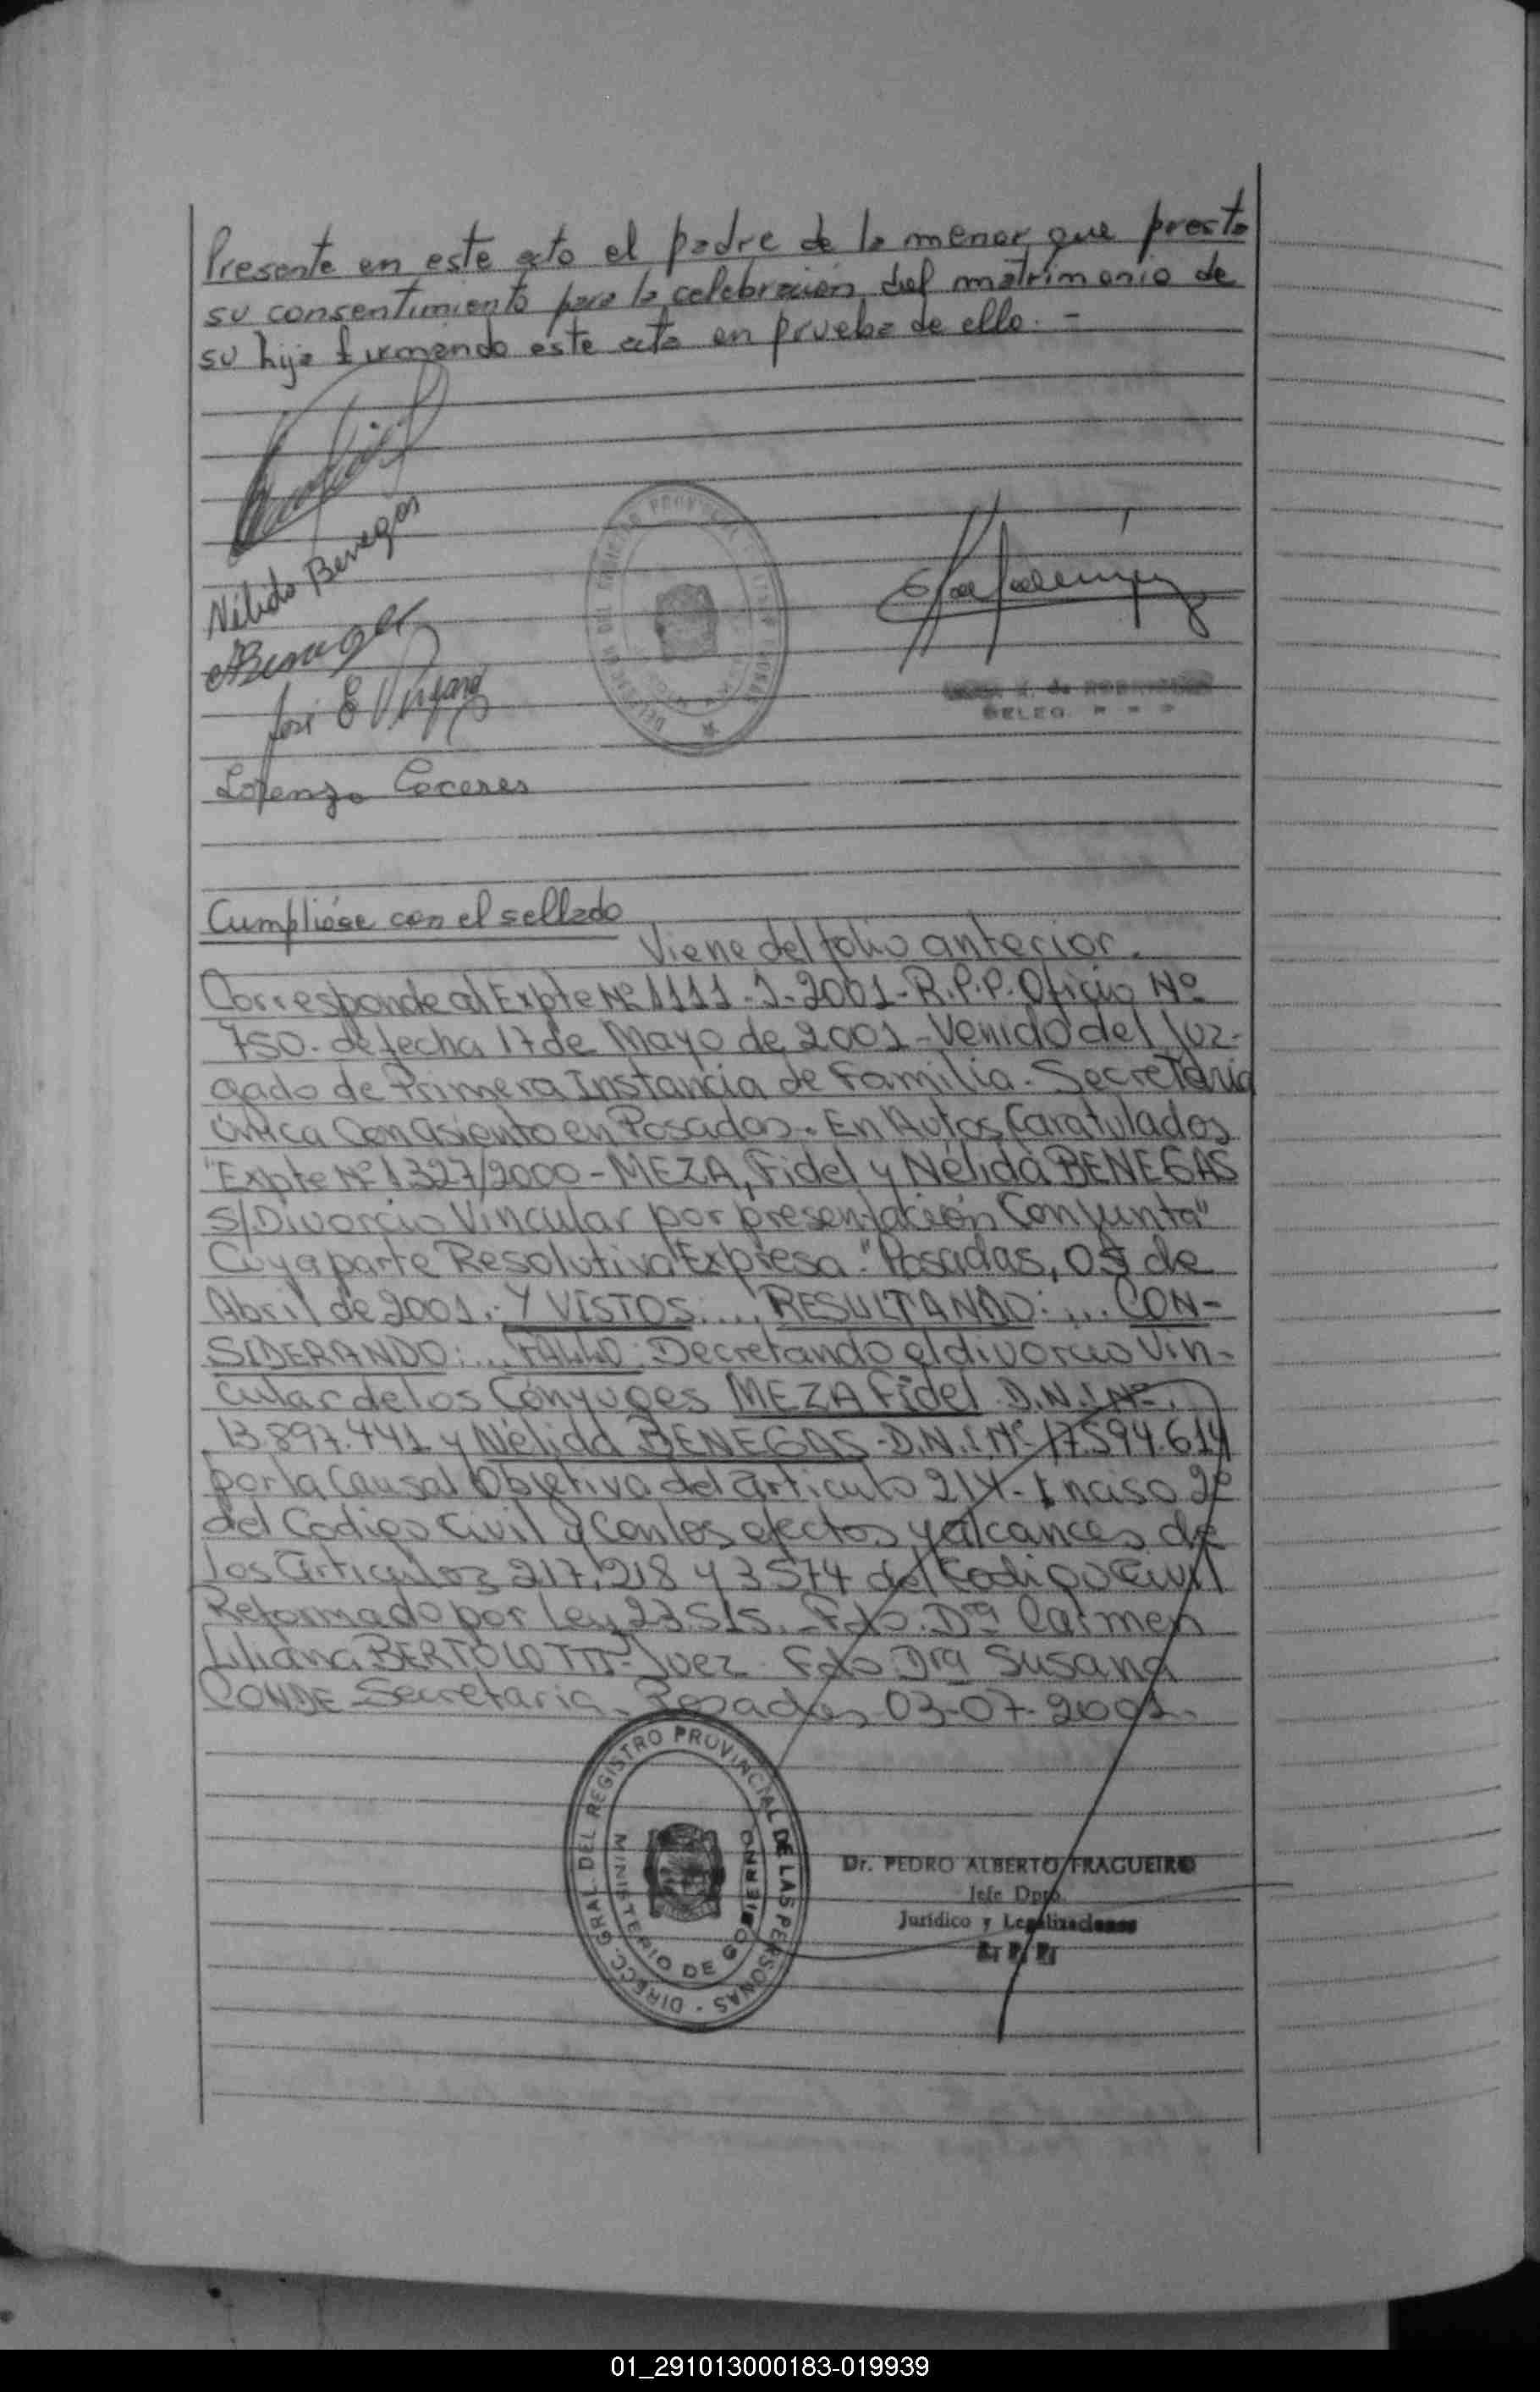 Presente en este acto el padre de la menor que presta
su consentimiento para la celebración del matrimonio de
su hija firmando este acta en prueba de ello. -
Nélida Benegas
Benegas
José E
Lorenzo Caceres
DELEG
Cumpliose con el sellado
Viene del folio anterior.
Corresponde al Expte Nº 1111-J-2001-R.P.P. Oficio Nº
750. de fecha 17 de Mayo de 2001-Venido del Juz-
gado de Primera Instancia de Familia. Secretaria
única Con asiento en Posadas. En Autos Caratulados
"Expte Nº 1327/2000-MEZA, Fidel y Nélida BENEGAS
S/Divorcio Vincular por presentación Conjunta"
Cuya parte Resolutiva Expresa: "Posadas, 05 de
Abril de 2001.- Y VISTOS: ... RESULTANDO: ... CON-
SIDERANDO: ... FALLO: Decretando el divorcio Vin-
cular de los Cónyuges MEZA Fidel D.N.I Nº
13.897.441 y Nélida BENEGAS-D.N.I Nº 17.594.614
por la Causal Objetiva del articulo 214-Inciso 2º
del Codigo Civil y con los efectos y alcances de
los articulos 217, 218 y 3574 del Codigo Civil
Reformado por Ley 23.515. Fdo. Dra Carmen
Liliana BERTOLOTTI-Juez. Fdo Dra Susana
CONDE Secretaria. Posadas 03-07-2001.
DIRECC. GRAL DEL REGISTRO PROVINCIAL DE LAS PERSONAS
MINISTERIO DE GOBIERNO
Dr. PEDRO ALBERTO FRAGUEIRO
Jefe Dpto.
Jurídico y Legalizaciones
01_291013000183-019939